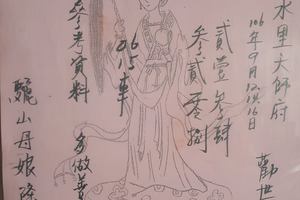 水里大師府
106年9月12、16日
勸世
貳壹參肆
參貳零捌
26
15
車
參考資料
多做善
驪山母娘降